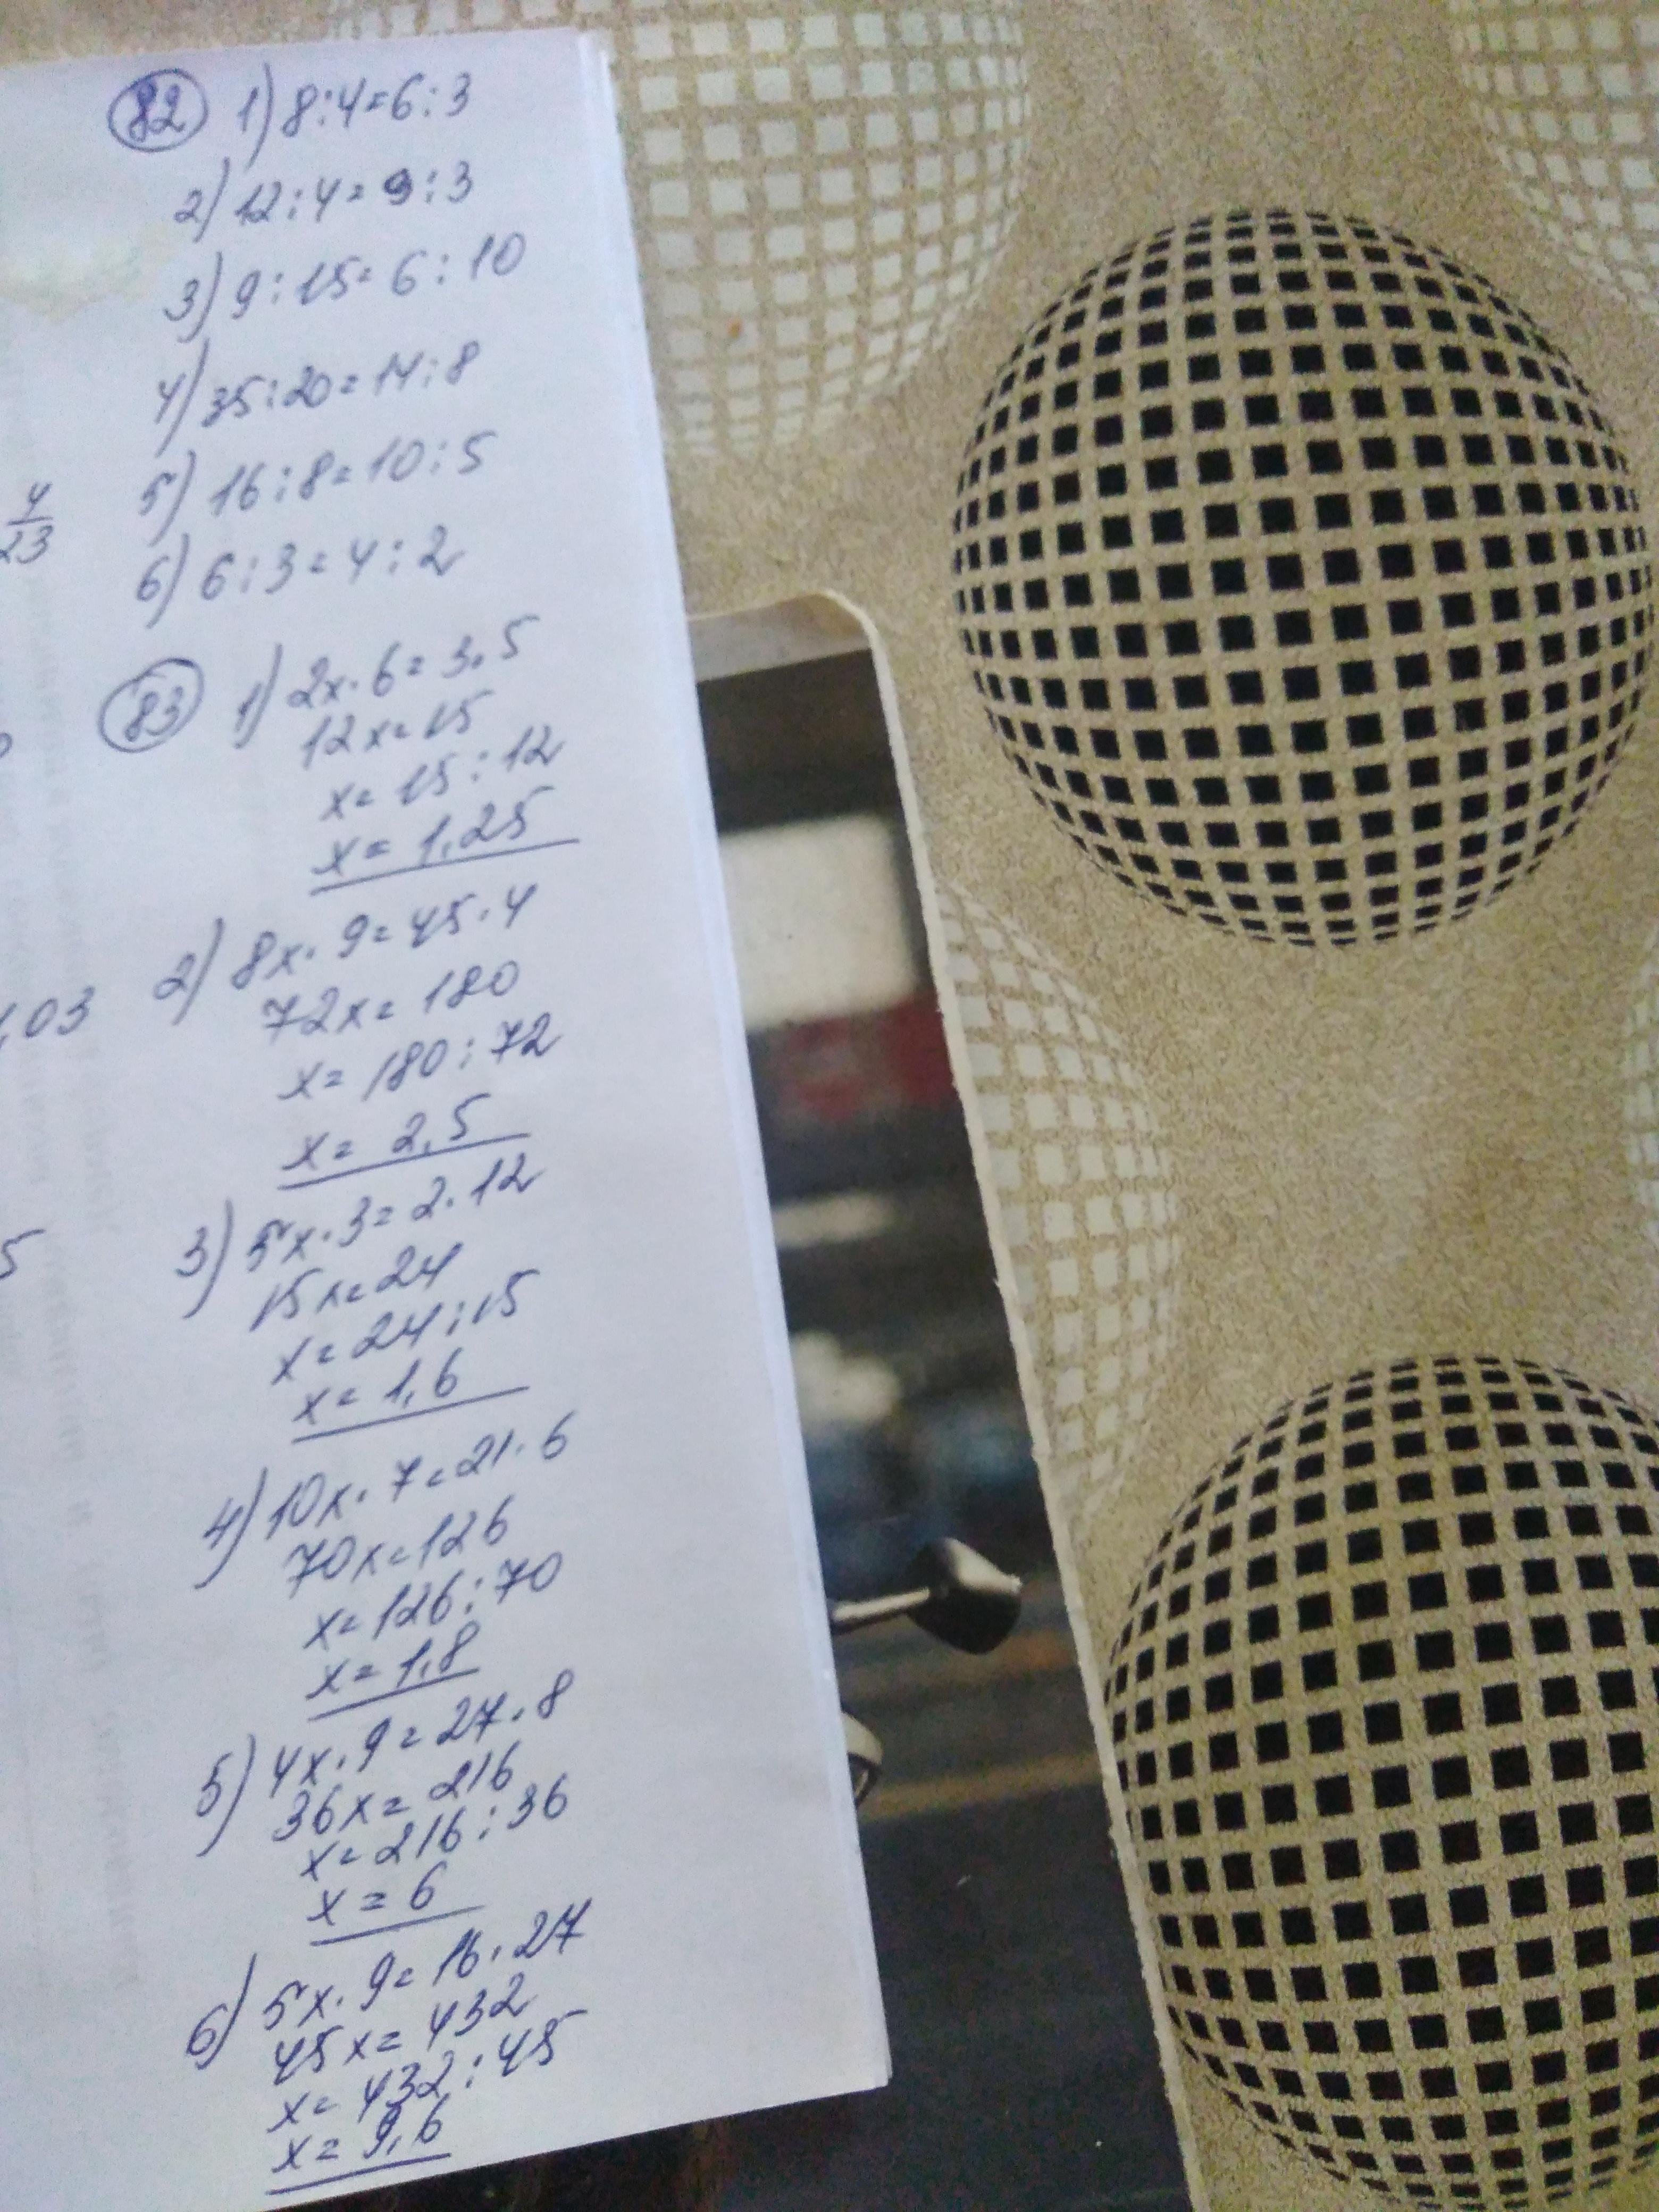 82 1) 8:4=6:3
2) 12:4=9:3
3) 9:15=6:10
4) 35:20=14:8
5) 16:8=10:5
4
23
6) 6:3=4:2
83 1) 2x·6=3·5
12x=15
x=15:12
x=1,25
2) 8x·9=45·4
,03
72x=180
x=180:72
x=2,5
3) 5x·3=2·12
5
15x=24
x=24:15
x=1,6
4) 10x·7=21·6
70x=126
x=126:70
x=1,8
5) 4x·9=27·8
36x=216
x=216:36
x=6
6) 5x·9=16·27
45x=432
x=432:45
x=9,6